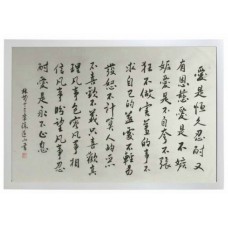 愛是恒久忍耐又
有恩慈愛是不嫉
妒愛是不自夸不張
狂不做害羞的事不
求自己的益處不輕易
發怒不計算人的惡
不喜歡不義只喜歡真
理凡事包容凡事相
信凡事盼望凡事忍
耐愛是永不止息